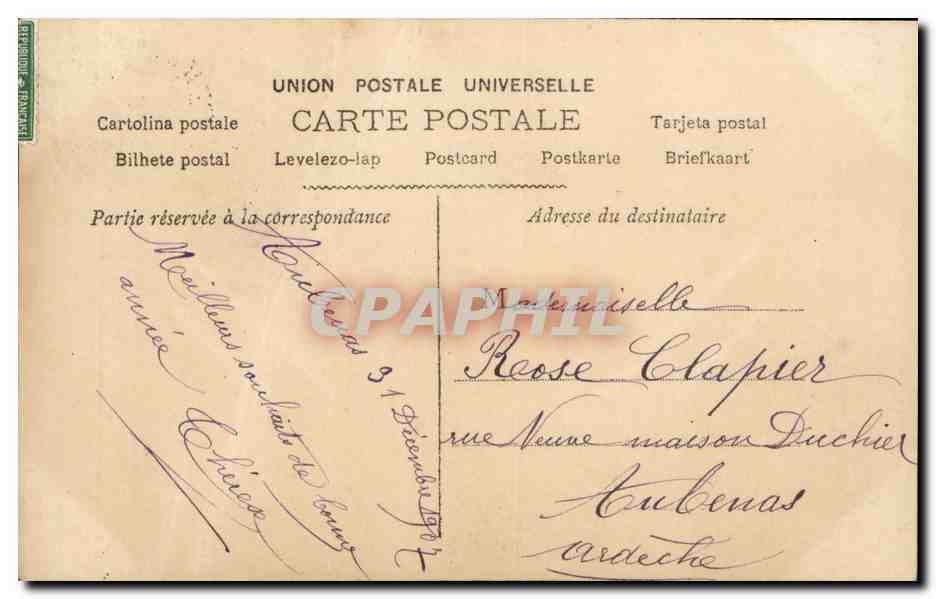 REPUBLIQUE FRANCAISE
UNION POSTALE UNIVERSELLE
CARTE POSTALE
Cartolina postale
Tarjeta postal
Bilhete postal Levelezo-lap Postcard Postkarte Briefkaart
Partie réservée à la correspondance
Adresse du destinataire
Aubenas 31 Décembre 1907
Meilleurs souhaits de bonne
année
Thérèse
M
Mademoiselle
Rose Clapier
rue Neuve maison Duchier
Aubenas
Ardèche
CPAPHIL